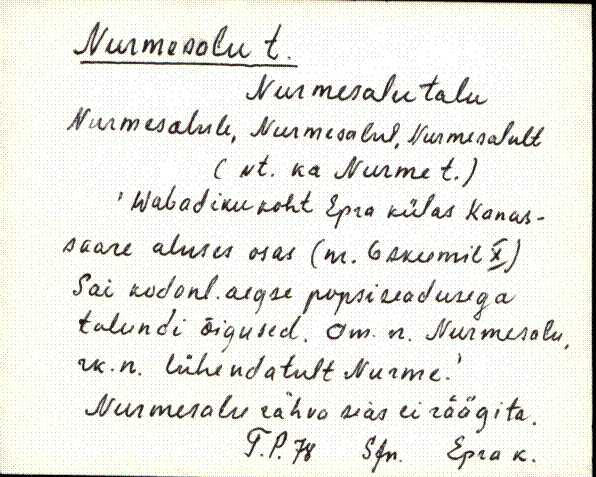 Nurmesalu t.
Nurmesalu talu
Nurmesalule, Nurmesalul, Nurmesalult
(vt. ka Nurme t.)
'Wabadikukoht Epra külas Kanas-
saare aluses osas (nr. 6 skeemil X)
Sai kodanl. aegse popsiseadusega
talundi õigused. Om. n. Nurmesalu,
rk. n. lühendatult Nurme.'
Nurmesalu rahva seas ei räägita.
T.P. 78 Sfn. Epra k.